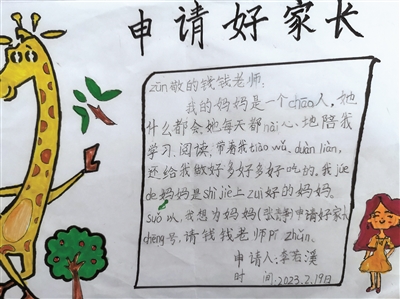 申请好家长
zūn敬的钱钱老师:
我的妈妈是一个chāo人,她
什么都会,她每天都nài心地陪我
学习、阅读,带着我tiào wǔ、duàn liàn,
还给我做好多好多好吃的。我jué
de妈妈是shì jiè上zuì好的妈妈。
suǒ以,我想为妈妈()申请好家长
chēng号,请钱钱老师pī zhǔn。
申请人:李若溪
时间:2023.2.19日